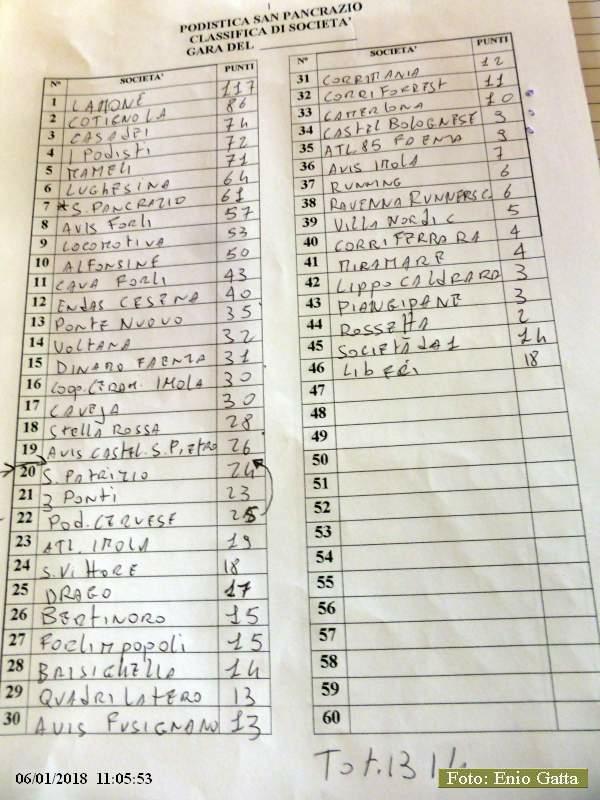 PODISTICA SAN PANCRAZIO
CLASSIFICA DI SOCIETA'
GARA DEL
N° SOCIETA' PUNTI
1 LAMONE 117
2 COTIGNOLA 86
3 CASADEI 74
4 I Podisti 72
5 MAMELI 71
6 LUGHESINA 64
7 *S. PANCRAZIO 61
8 AVIS FORLI 57
9 LOCOMOTIVA 53
10 ALFONSINE 50
11 CAVA FORLI 43
12 ENDAS CESENA 40
13 PONTE NUOVO 35
14 VOLTANA 32
15 DINAMO FAENZA 31
16 COOP. CERAM. IMOLA 30
17 CAVEJA 30
18 STELLA ROSSA 28
19 AVIS CASTEL. S. PIETRO 26
20 S. PATRIZIO 24
21 3 PONTI 23
22 POD. CERVESE 25
23 ATL. IMOLA 19
24 S. VITTORE 18
25 DRAGO 17
26 BERTINORO 15
27 FORLIMPOPOLI 15
28 BRISIGHELLA 14
29 QUADRILATERO 13
30 AVIS FUSIGNANO 13
N° SOCIETA' PUNTI
31 CORRIMANIA 12
32 CORRIFORREST 11
33 CAMERLONA 10
34 CASTEL BOLOGNESE 9
35 ATL. 85 FAENZA 9
36 AVIS IMOLA 7
37 RUNNING 6
38 RAVENNA RUNNERS C. 6
39 VILLA NORDIC 5
40 CORRIFERRARA 4
41 MIRAMARE 4
42 LIPPO CALDRARA 3
43 PIANGIPANE 3
44 ROSSETTA 2
45 SOCIETÀ DA 1 14
46 LIBERI 18
47
48
49
50
51
52
53
54
55
56
57
58
59
60
Tot. 13
06/01/2018 11:05:53
Foto: Enio Gatta